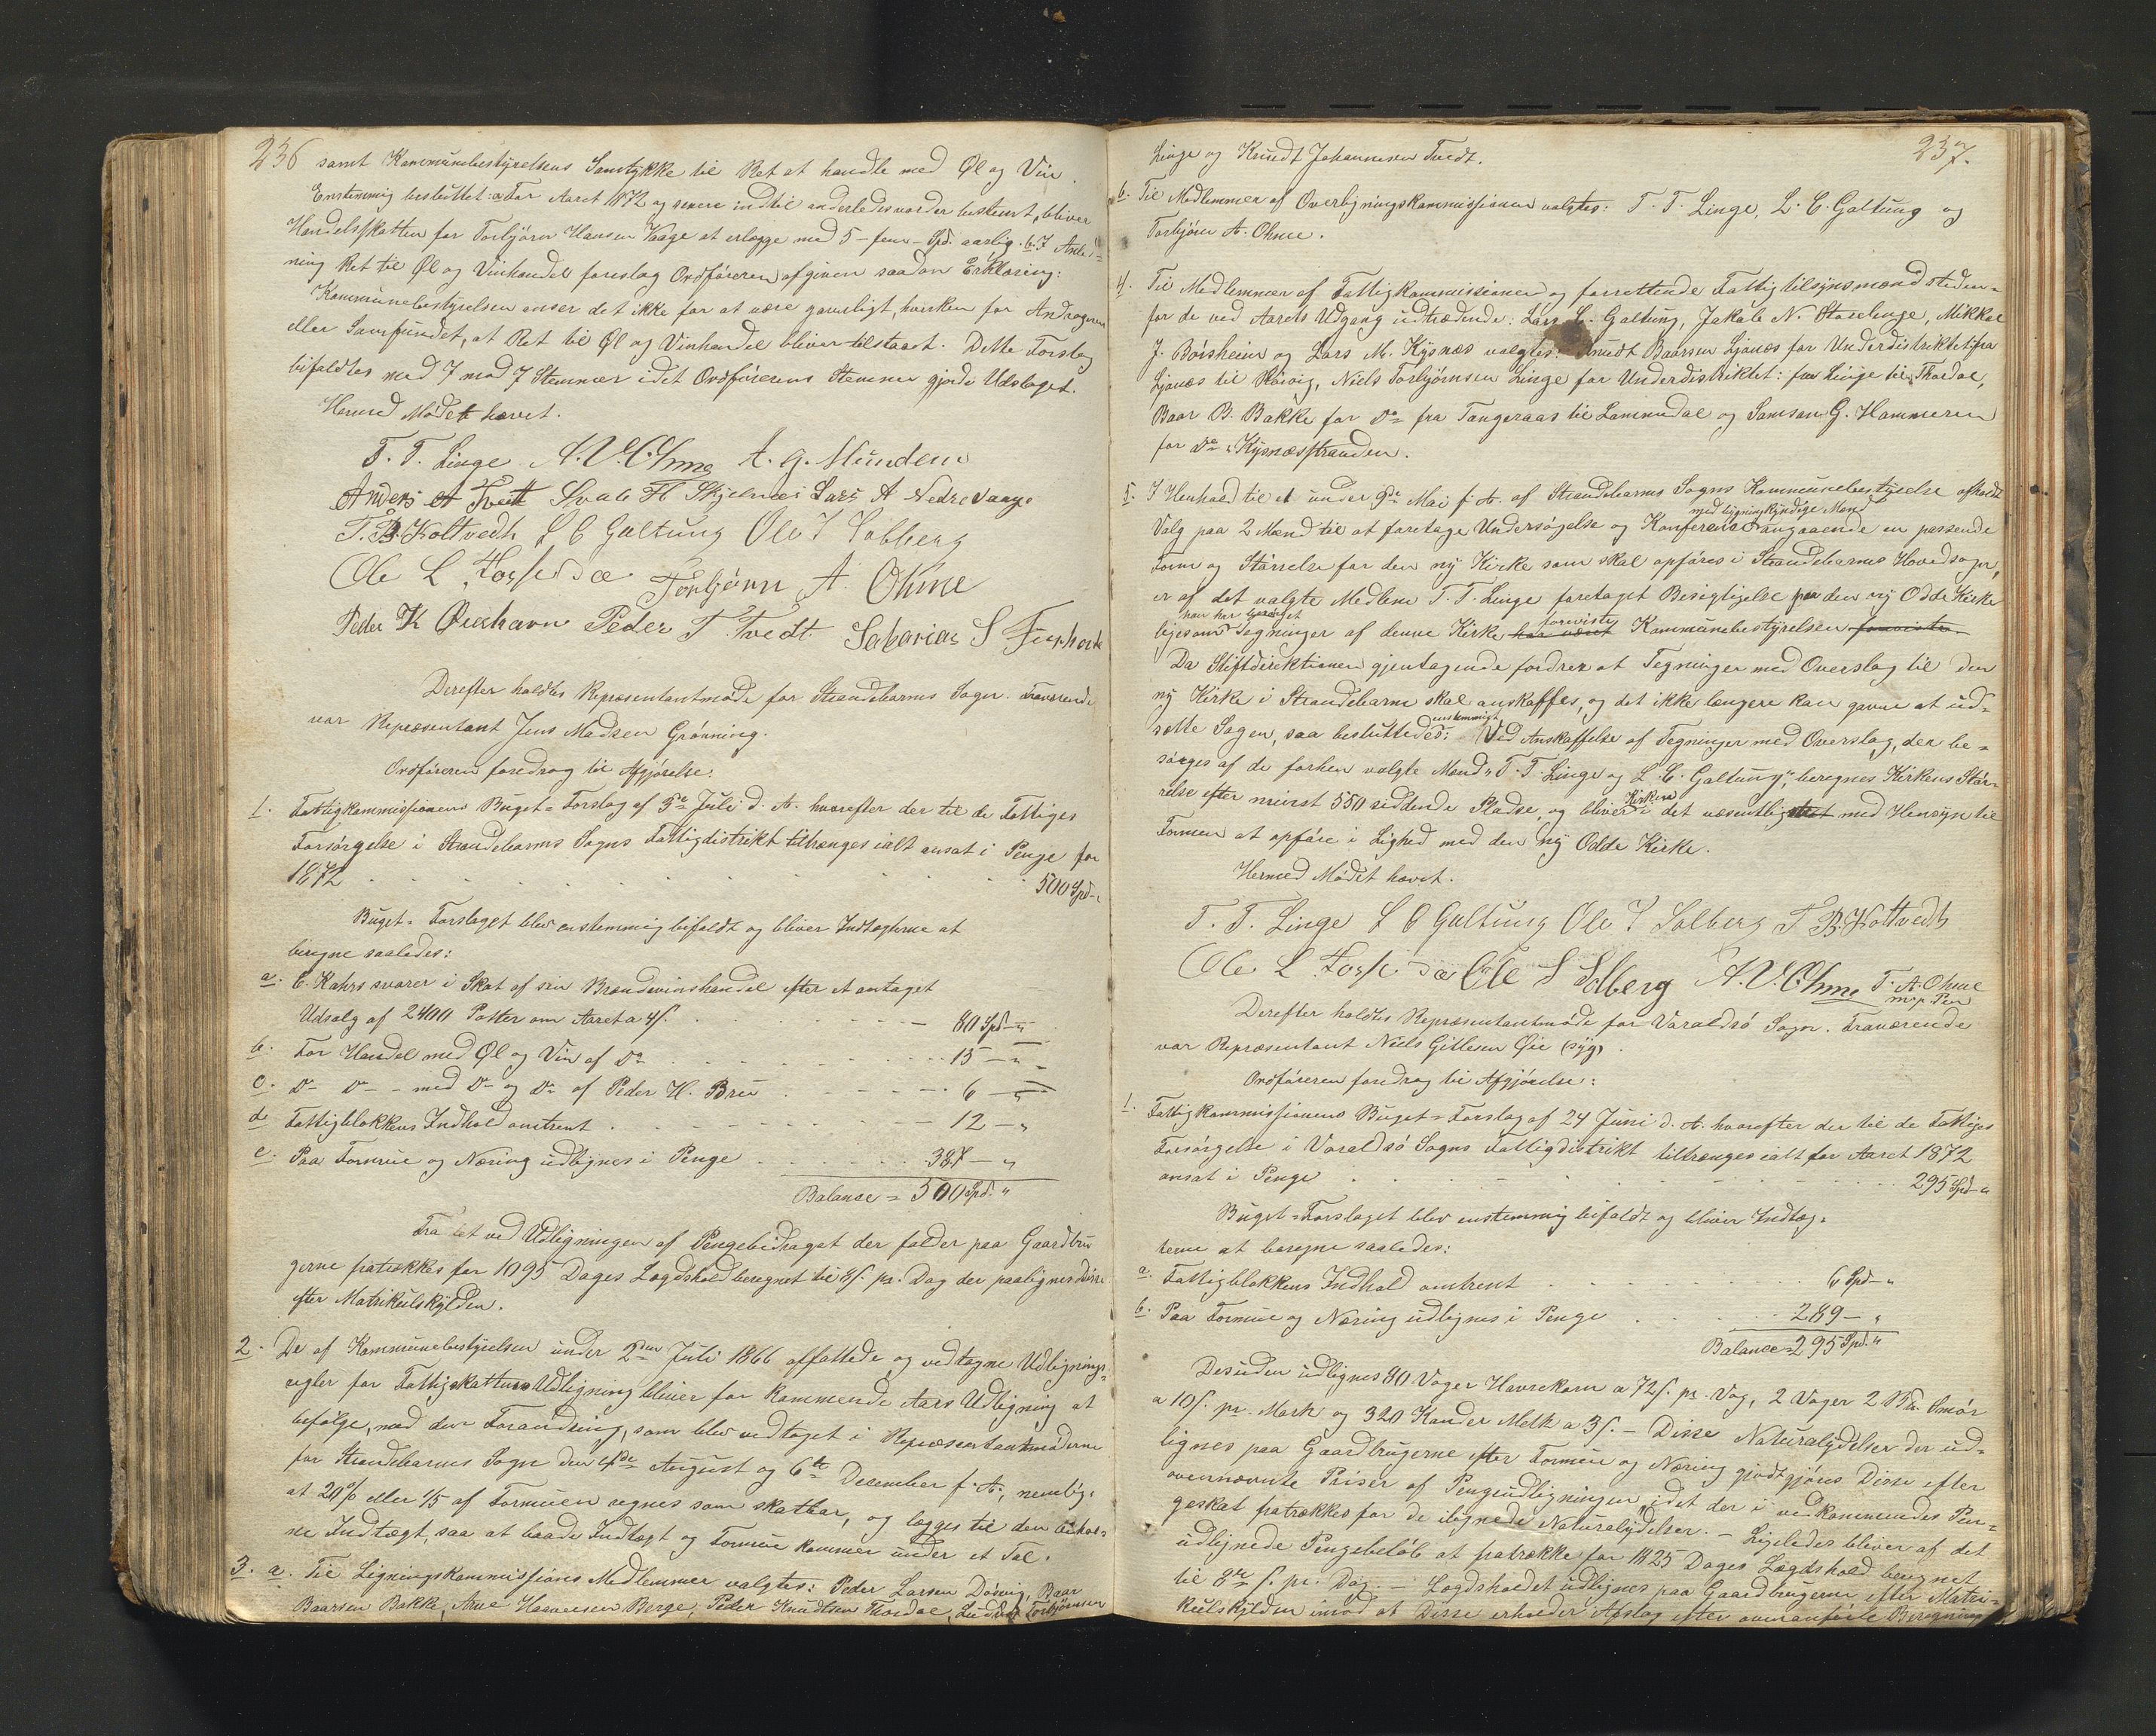 236 samt Kommunebestyrelsens Samtykke til Ret at handle med Øl og Viin.
Enstemmig besluttet: a, For Aaret 1872 og senere indtil anderledes vorder bestemt, bliver
Handelsskatten for Torbjörn Hansen Vaage at erlægge med 5 - fem - Spd. aarlig. b. I Anled-
ning Ret til Øl og Viinhandel foreslog Ordføreren afgiven saadan Erklæring:
Kommunebestyrelsen anser det ikke for at være gavnligt, hverken for Andrageren
eller Samfundet, at Ret til Øl og Vinhandel bliver tilstaaet. Dette Forslag
bifaldtes med 7 mod 7 Stemmer idet Ordførerens Stemme gjorde Udslaget.
Hermed Mödet hævet.
T. T. Linge A. V. Ohme A. G. Mundem
Anders A Tveit Svale H Skjelnes Lars A Nedrevaage
T. B. Koltvedt L C Galtung Ole I Solberg
Ole L Fosse Torbjörn A. Ohme
Peder K Oxehavn Peder T. Tvedt Sakarias S
Derefter holdtes Repræsentantmöde for Strandebarms Sogn. Fraværende
var Repræsentant Jens Madsen Grönning.
Ordföreren foredrog til Afgjörelse:
1. Fattigkommissionens Buget-Forslag af 5te Juli d. A. hvorefter der til de Fattiges
Forsörgelse i Strandebarms Sogns Fattigdistrikt tiltrænges ialt ansat i Penge for
1872 . . . . . . . . . . 500 Spd - "
Buget-Forslaget blev enstemmig bifaldt og bliver Indtægterne at
beregne saaledes:
a. C. Kahrs svarer i Skat af sin Brændevinshandel efter et antaget
Udsalg af 2400 Potter om Aaret a 4 s. . . . . 80 Spd - "
b. For Handel med Øl og Vin af Do . . . . 15 - "
c. Do Do - med Do og Do af Peder H. Bru . . . . 6 - "
d. Fattigblokkens Indhold omtrent . . . . 12 - "
e. Paa Formue og Næring udlignes i Penge . . . . 387 - "
Balance = 500 Spd. "
Fra det ved Udligningen af Pengebidraget der falder paa Gaardbru
gerne fratrækkes for 1095 Dages Lægdshold beregnet til 8 s. pr. Dag der paalignes Disse
efter Matrikulskylden.
2. De af Kommunebestyrelsen under 2den Juli 1866 affattede og vedtagne Udlignings-
regler for Fattigskattens Udligning bliver for kommende Aars Udligning at
befölge, med den Forandring, som blev vedtaget i Repræsentantmöderne
for Strandebarms Sogn den 4de August og 6te December f. A., nemlig:
at 20% eller 1/5 af Formuen regnes som skatbar, og lægges til den behol-
ne Indtægt, saa at baade Indtægt og Formue kommer under et Tal.
3. a. Til Ligningskommissions Medlemmer valgtes: Peder Larsen Døsvig, Baar
Baarsen Bakke, Arne Haaversen Berge, Peder Knudtsen Thordal, Torbjörnsen
237.
Linge og Knudt Johannesen Tvedt.
b. Til Medlemmer af Overligningskommissionen valgtes: T. T. Linge, L. C. Galtung og
Torbjörn A. Ohme.
4. Til Medlemmer af Fattigkommissionen og forrettende Fattigtilsynsmænd steden-
for de ved Aarets Udgang udtrædende: Lars C. Galtung, Jakob N. Staslinge, Mikkel
J. Börsheim og Lars M. Kysnæs valgtes: Knudt Baarsen Ljonæs for Underdistriktet: fra
Ljonæs til, Niels Torbjörnsen Linge for Underdistriktet: fra Linge til Thordal,
Baar B. Bakke for Do fra Tangeraas til Lammedal og Samson G. Hammeren
for Do: Kysnæsstranden.
5. I Henhold til et under 9de Mai f. A. af Strandebarms Sogns Kommunebestyrelse afholdt
med bygningskyndige Mænd
Valg paa 2 Mænd til at foretage Undersögelse og Konferere angaaende en passende
Form og Störrelse for den ny Kirke som skal opföres i Strandebarms Hovedsogn,
er af det valgte Medlem T. T. Linge foretaget Besigtigelse paa den ny Odde Kirke
han har forevist
ligesom Tegninger af denne Kirke har været Kommunebestyrelsen foreviste.
Da Stiftdirektionen gjentagende fordrer at Tegninger med Overslag til den
ny Kirke i Strandebarm skal anskaffes, og det ikke længere kan gavne at ud-
enstemmigt
sætte Sagen, saa besluttedes: Ved Anskaffelse af Tegninger med Overslag, der be-
sörges af de forhen valgte Mænd "T. T. Linge og L. C. Galtung", beregnes Kirkens Stör-
Kirken
relse efter mindst 550 siddende Pladse, og bliver i det væsentligste med Hensyn til
Formen at opföre i Lighed med den ny Odde Kirke.
Hermed Mödet hævet.
T. T. Linge L C Galtung Ole I Solberg T B. Koltvedt
Ole L Fosse Ole S Solberg A. V. Ohme T. A. Ohme
m. p. Pen
Derefter holdtes Repræsentantmöde for Varaldsö Sogn. Fraværende
var Repræsentant Niels Gitlesen Øie (syg).
Ordföreren foredrog til Afgjörelse:
1. Fattigkommissionens Buget-Forslag af 24 Juni d. A. hvorefter der til de Fattiges
Forsörgelse i Varaldsö Sogns Fattigdistrikt tiltrænges ialt for Aaret 1872
ansat i Penge . . . . . . . . 295 Spd - "
Buget-Forslaget blev enstemmig bifaldt og bliver Indtæg-
terne at beregne saaledes:
a. Fattigblokkens Indhold omtrent . . . . 6 Spd - "
b. Paa Formue og Næring udlignes i Penge . . . . 289 - "
Balance = 295 Spd. "
Desuden udlignes 80 Voger Havrekorn a 72 s. pr. Vog, 2 Voger 2 Bpd. Smör
a 10 s. pr. Mark og 320 Kander Melk a 3 s. - Disse Naturalydelser der ud-
lignes paa Gaardbrugerne efter Formue og Næring godtgjöres Disse efter
ovennævnte Priser af Pengeudligningen, idet der i vedkommendes Pen-
geskat fratrækkes for de ilignede Naturalydelser. - Ligeledes bliver af det
udlignede Pengebelöb at fratrække for 1825 Dages Lægdshold beregnet
til 8te s. pr. Dag. - Lægdsholdet udlignes paa Gaardbrugerne efter Matri-
kulskylden imod at Disse erholder Afslag efter ovenanförte Beregning